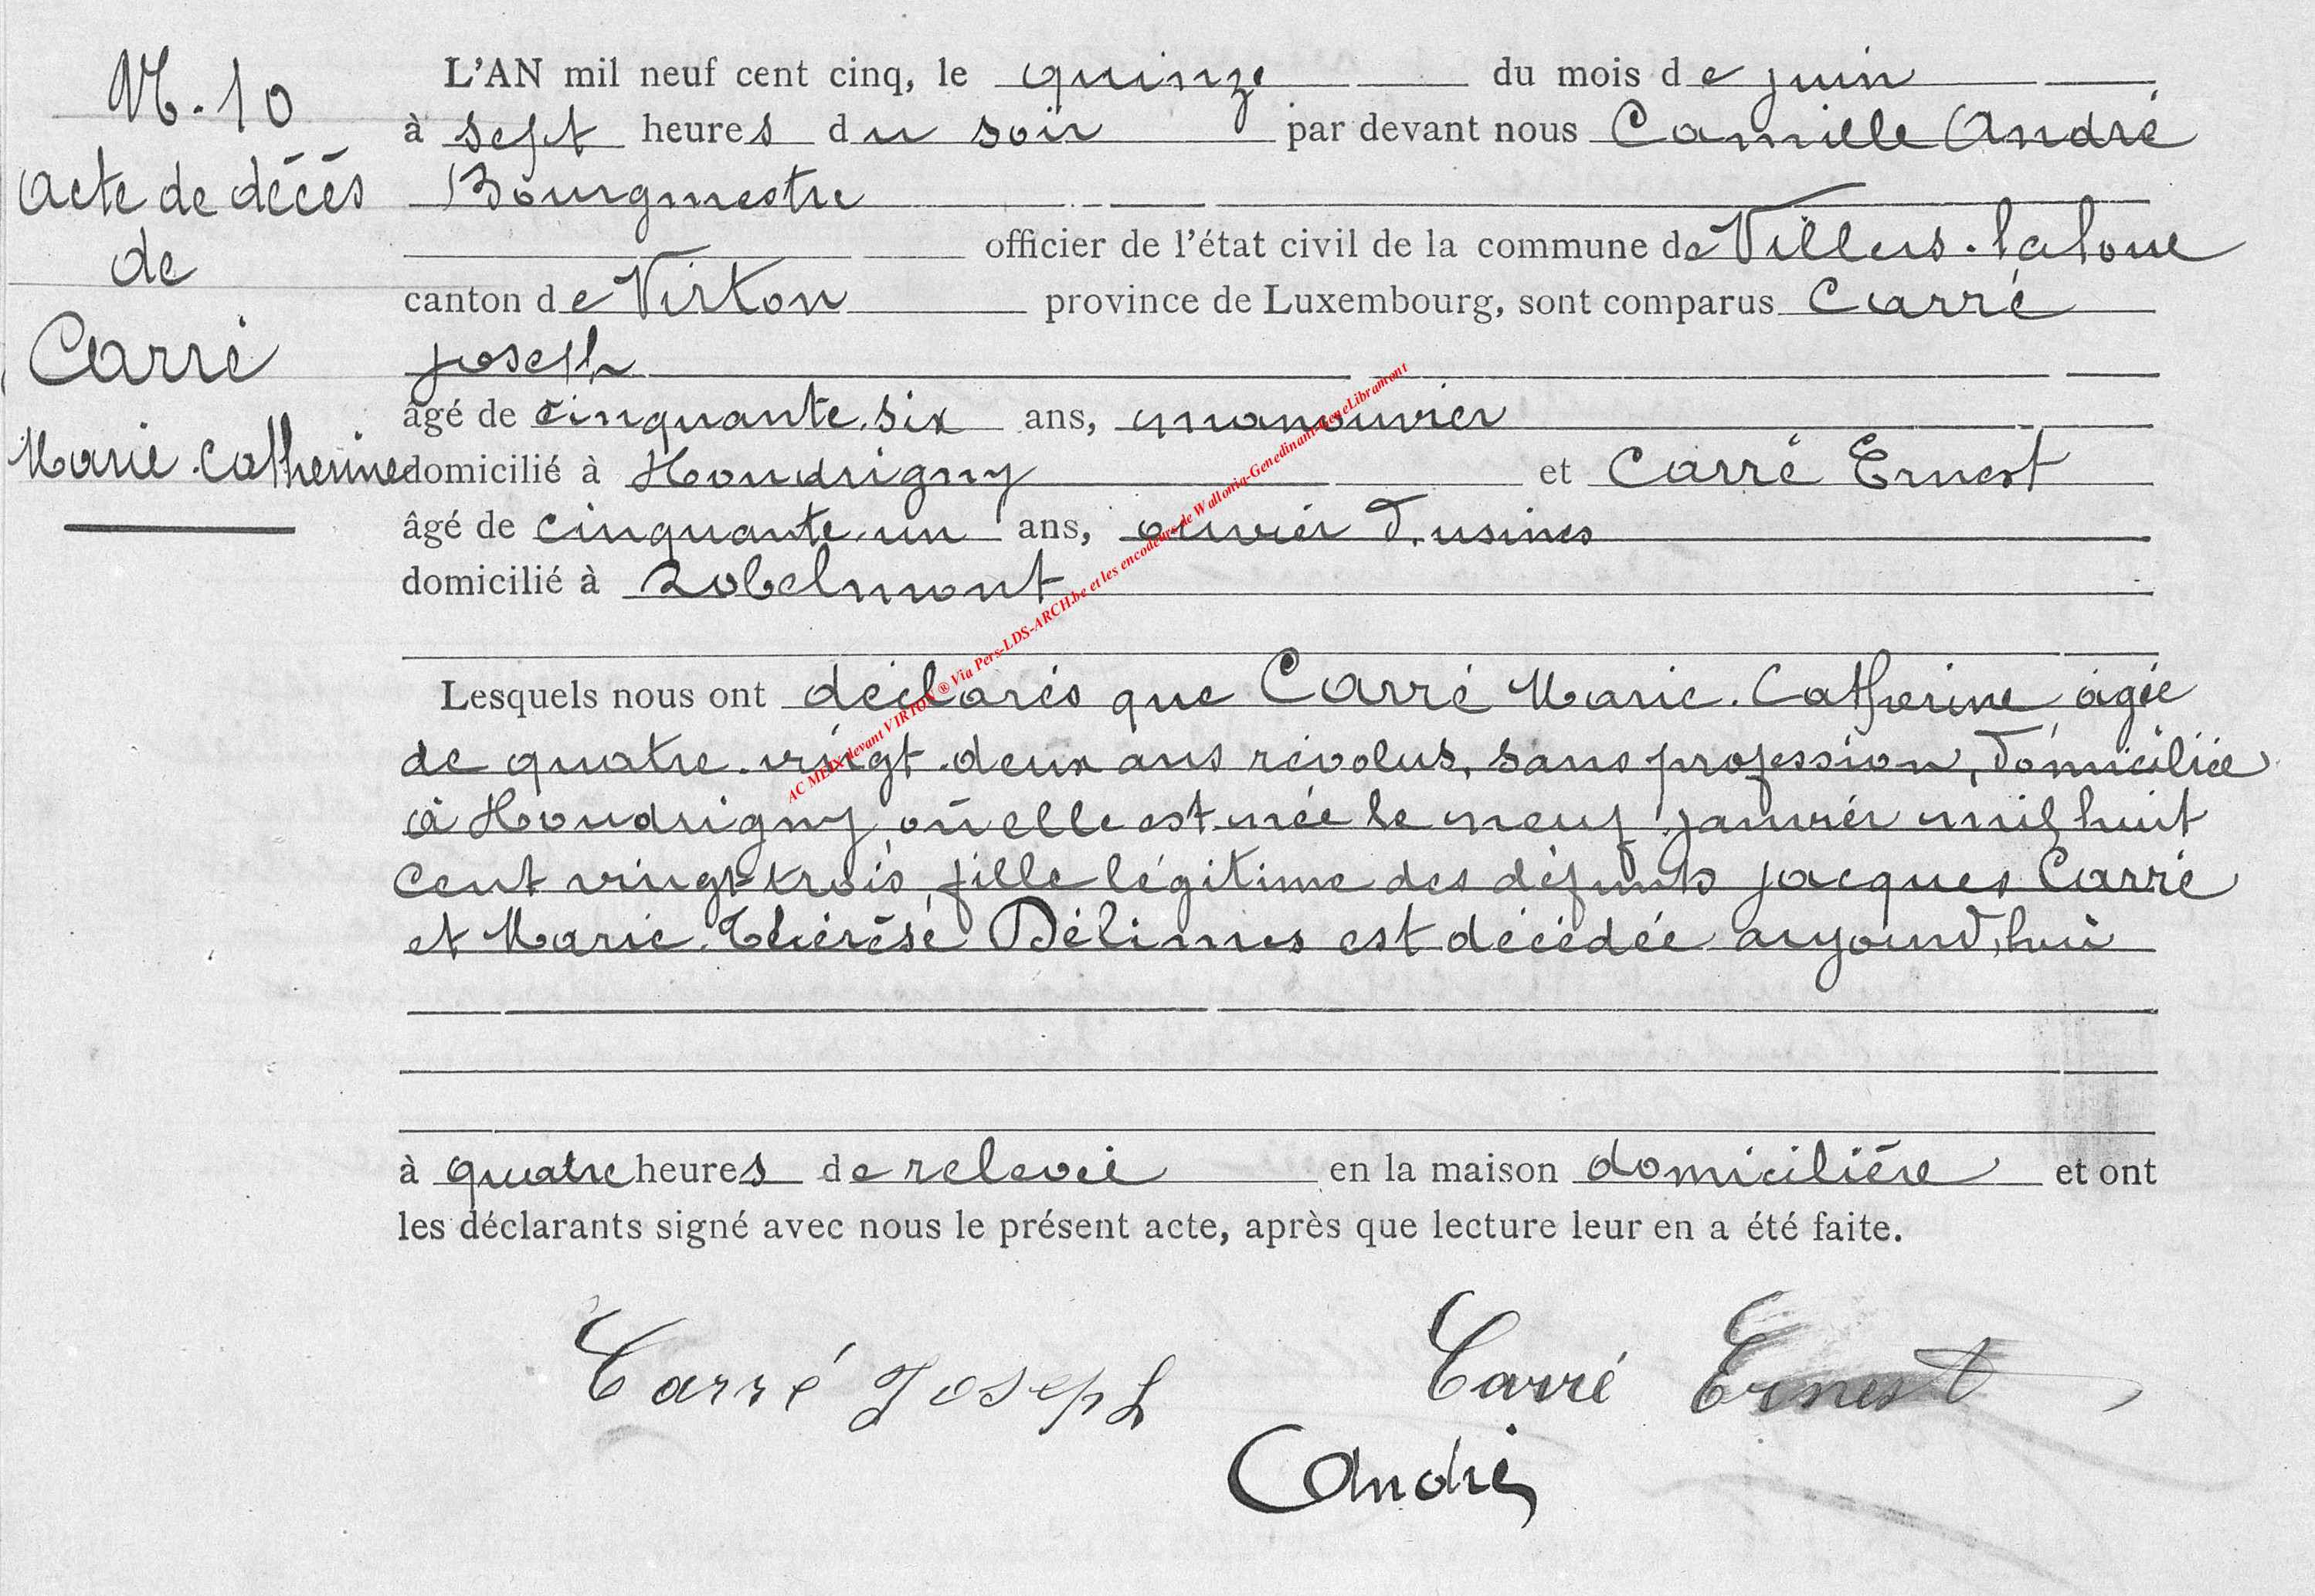 N. 10
Acte de décès
de
Carré
Marie.Catherine
L'AN mil neuf cent cinq, le quinze du mois de juin
à sept heures du soir par devant nous Camille André
Bourgmestre
officier de l'état civil de la commune de Villers-la-loue
canton de Virton province de Luxembourg, sont comparus Carré
Joseph
âgé de cinquante.six ans, manouvrier
domicilié à Houdrigny et Carré Ernest
âgé de cinquante.un ans, ouvrier d'usines
domicilié à Robelmont
Lesquels nous ont déclarés que Carré Marie.Catherine, âgée
de quatre.vingt.deux ans révolus, sans profession, domiciliée
à Houdrigny, où elle est née le neuf janvier mil huit
cent vingt-trois, fille légitime des défunts Jacques Carré
et Marie.Thérèse Délimes est décédée aujourd'hui
à quatre heures de relevée en la maison domicilière et ont
les déclarants signé avec nous le présent acte, après que lecture leur en a été faite.
Carré Joseph Carré Ernest
CAndré
AC MEIX devant VIRTON ® Via Pers-LDS-ARCH.be et les encodeurs de Wallonia-Genedinant-GeneLibramont